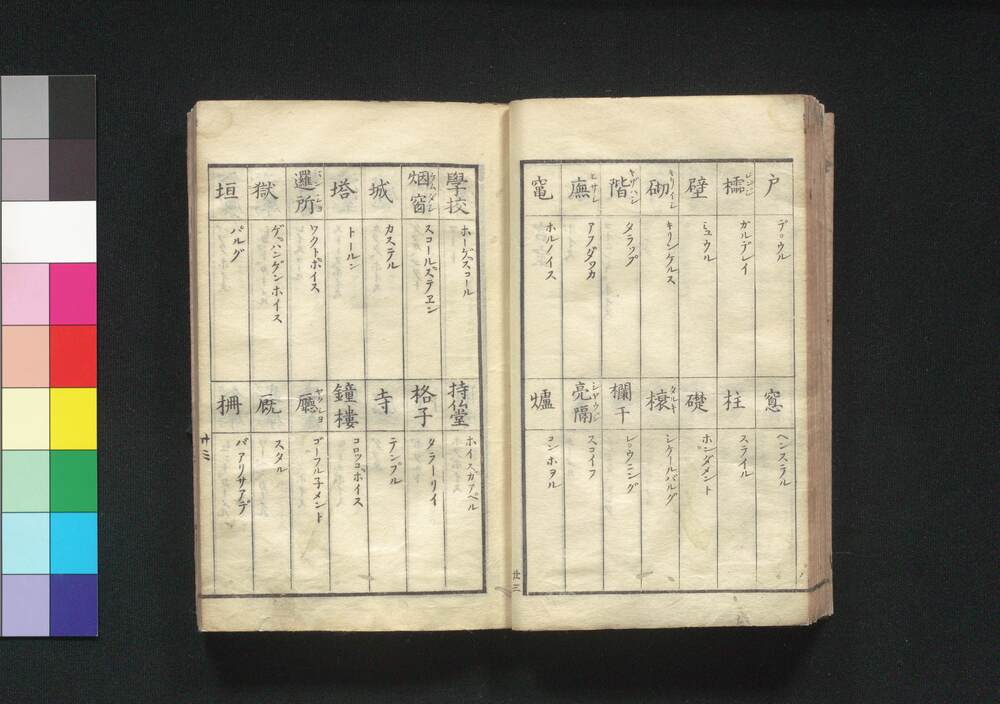 戸 デウル
櫺 レンジ ガルデレイ
壁 ミュウル
砌 キリイシ キリンケルス
階 キザハシ タラップ
廡 ヒサシ アフダッカ
竃 ホルノイス
窓 ヘンステル
柱 スティル
礎 ホンダメント
榱 タルキ シケールバルグ
欄干 レウニング
亮隔 シヤウジ スコイフ
爐 コンホヲル
廿三
學校 ホーゲスコール
烟窗 ケムダシ スコールステエン
城 カステル
塔 トールン
邏所 バンシヨ ワクトホイス
獄 ゲハンゲンホイス
垣 バルグ
持仏堂 ホイスカアペル
格子 タラーリイ
寺 テンプル
鐘樓 コロツコホイス
廳 ヤクシヨ ゴーフル子メント
厩 スタル
柵 バアリサアデ
廿三